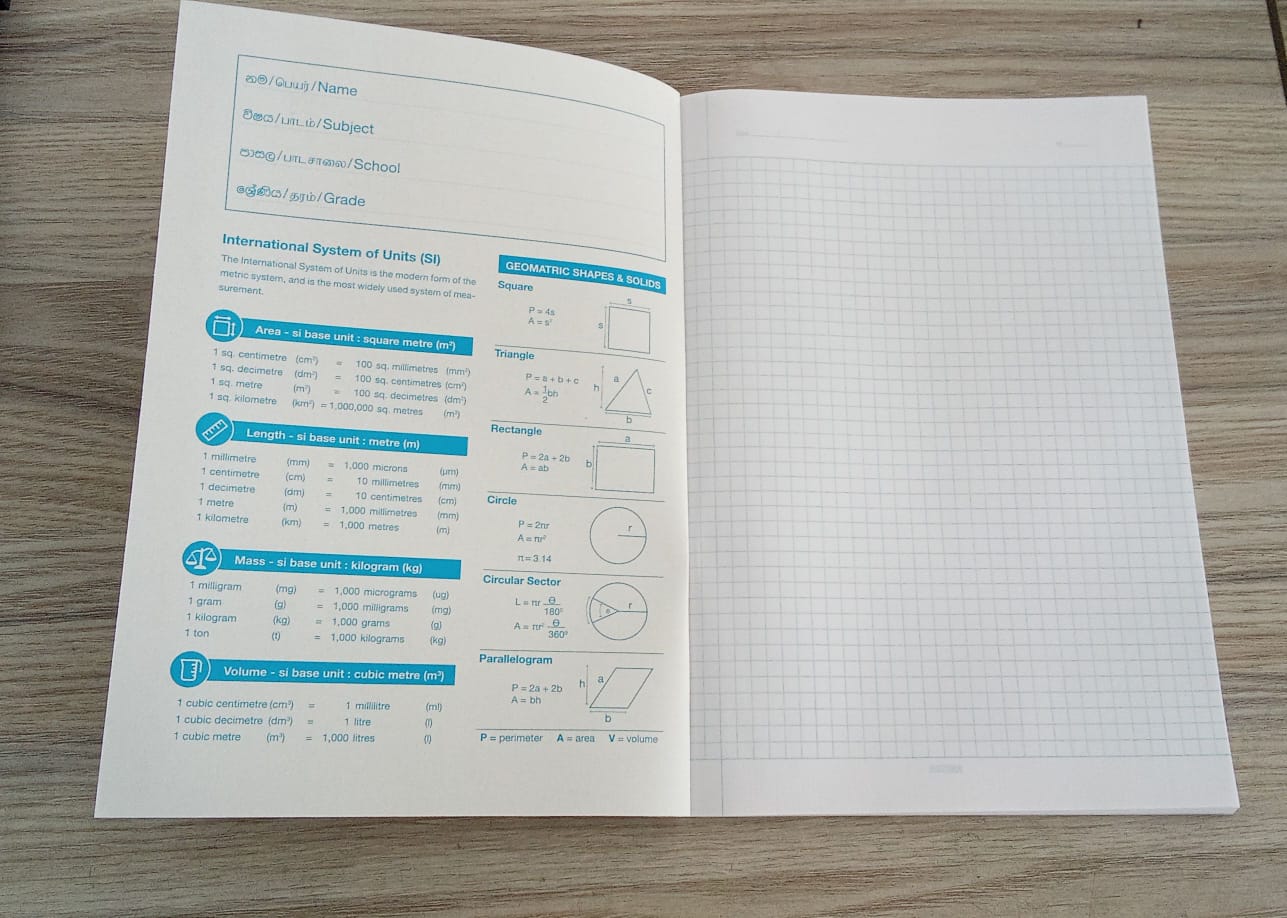 නම/பெயர்/Name
විෂය/பாடம்/Subject
පාසල/பாடசாலை/School
ශ්‍රේණිය/தரம்/Grade
International System of Units (SI)
The International System of Units is the modern form of the
metric system, and is the most widely used system of mea-
surement.
Area - si base unit : square metre (m²)
1 sq. centimetre (cm²) = 100 sq. millimetres (mm²)
1 sq. decimetre (dm²) = 100 sq. centimetres (cm²)
1 sq. metre (m²) = 100 sq. decimetres (dm²)
1 sq. kilometre (km²) = 1,000,000 sq. metres (m²)
Length - si base unit : metre (m)
1 millimetre (mm) = 1,000 microns (µm)
1 centimetre (cm) = 10 millimetres (mm)
1 decimetre (dm) = 10 centimetres (cm)
1 metre (m) = 1,000 millimetres (mm)
1 kilometre (km) = 1,000 metres (m)
Mass - si base unit : kilogram (kg)
1 milligram (mg) = 1,000 micrograms (ug)
1 gram (g) = 1,000 milligrams (mg)
1 kilogram (kg) = 1,000 grams (g)
1 ton (t) = 1,000 kilograms (kg)
Volume - si base unit : cubic metre (m³)
1 cubic centimetre (cm³) = 1 millilitre (ml)
1 cubic decimetre (dm³) = 1 litre (l)
1 cubic metre (m³) = 1,000 litres (l)
GEOMATRIC SHAPES & SOLIDS
Square
s
P = 4s
A = s²
s
Triangle
P = a + b + c
A = 1/2 bh
h a c
b
Rectangle
a
P = 2a + 2b
A = ab
b
Circle
P = 2πr
A = πr²
π = 3.14
r
Circular Sector
L = πr θ/180°
A = πr² θ/360°
θ r
Parallelogram
P = 2a + 2b
A = bh
h a
b
P = perimeter A = area V = volume